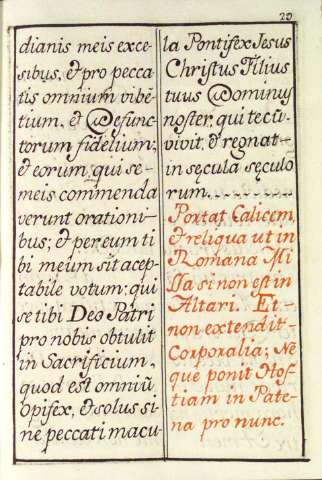 20
dianis meis exce-
sibus, & pro pecca
tis omnium vibē
tium, et Defunc
torum fidelium;
& eorum, qui se-
meis commenda
verunt orationi-
bus; & per eum ti
bi meum sit acep-
tabile votum; qui
se tibi Deo Patri
pro nobis obtulit
in Sacrificium,
quod est omniū
opifex, & solus si-
ne peccati macu-
la Pontifex Jesus
Christus Filius
tuus Dominus
noster, qui tecū-
vivit, & regnat
in sęcula sęculo
rum.
Portat Calicem,
& reliqua ut in
Romana Mi
ssa si non est in
Altari. Et-
non extendit-
Corporalia; Ne
que ponit Hos
tiam in Pate-
na pro nunc.